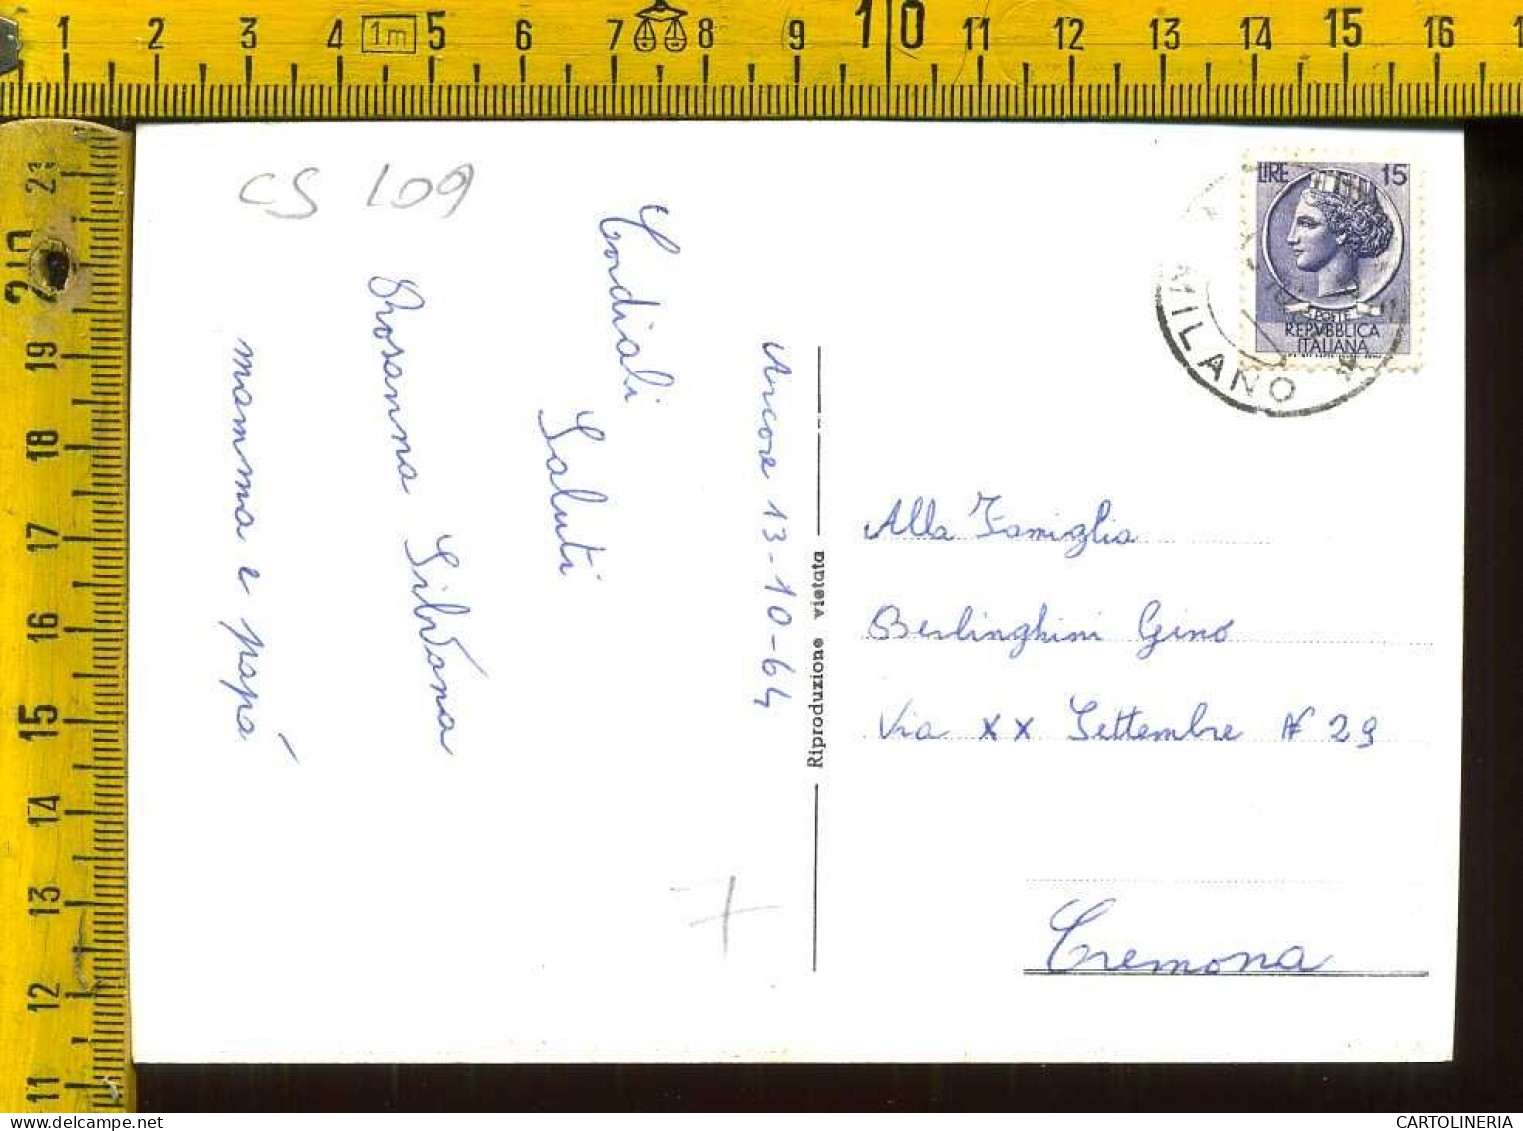 1 2 3 4 1m 5 6 7 8 9 10 11 12 13 14 15 16
21
20
19
18
17
16
15
14
13
12
11
CS 109
Arcore 13-10-64
Cordiali
Saluti
Rosanna Silvana
mamma e papà
Riproduzione vietata
LIRE 15
POSTE
REPVBBLICA
ITALIANA
MILANO
Alla Famiglia
Berlinghini Gino
Via XX Settembre N 29
Cremona
CARTOLINERIA